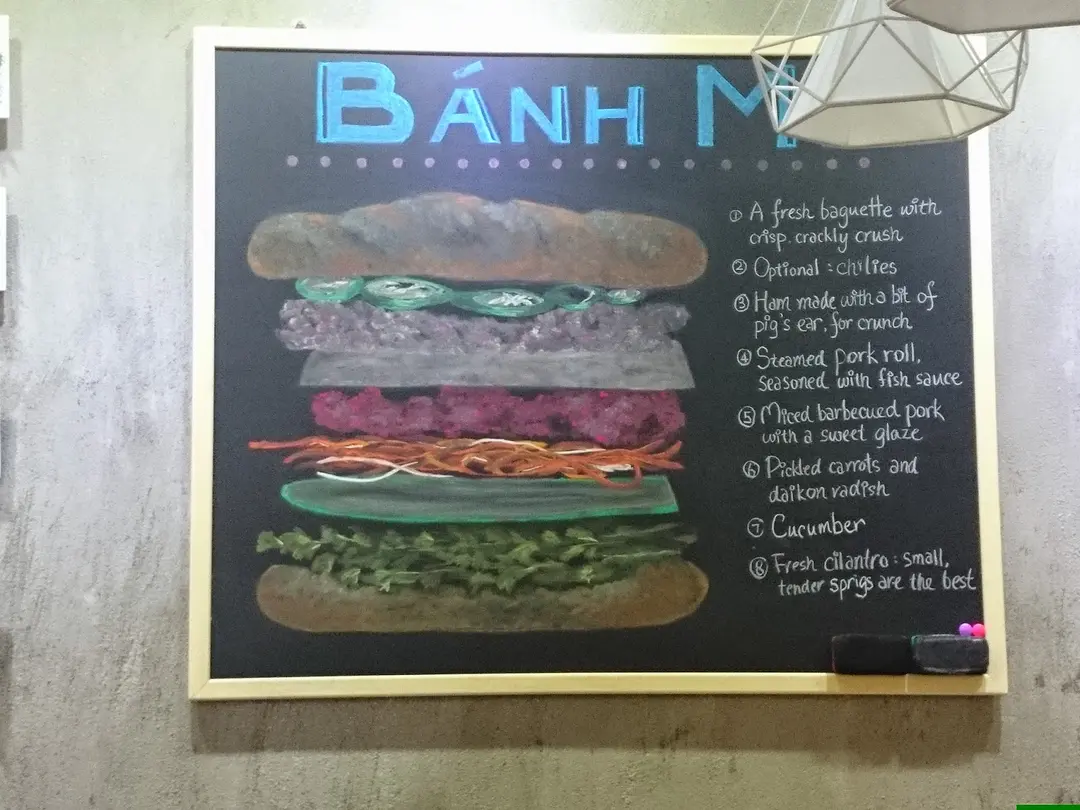 BÁNH M
① A fresh baguette with
crisp. crackly crush
② Optional : chilies
③ Ham made with a bit of
pig's ear, for crunch
④ Steamed pork roll,
seasoned with fish sauce
⑤ Miced barbecued pork
with a sweet glaze
⑥ Pickled carrots and
daikon radish
⑦ Cucumber
⑧ Fresh cilantro : small,
tender sprigs are the best